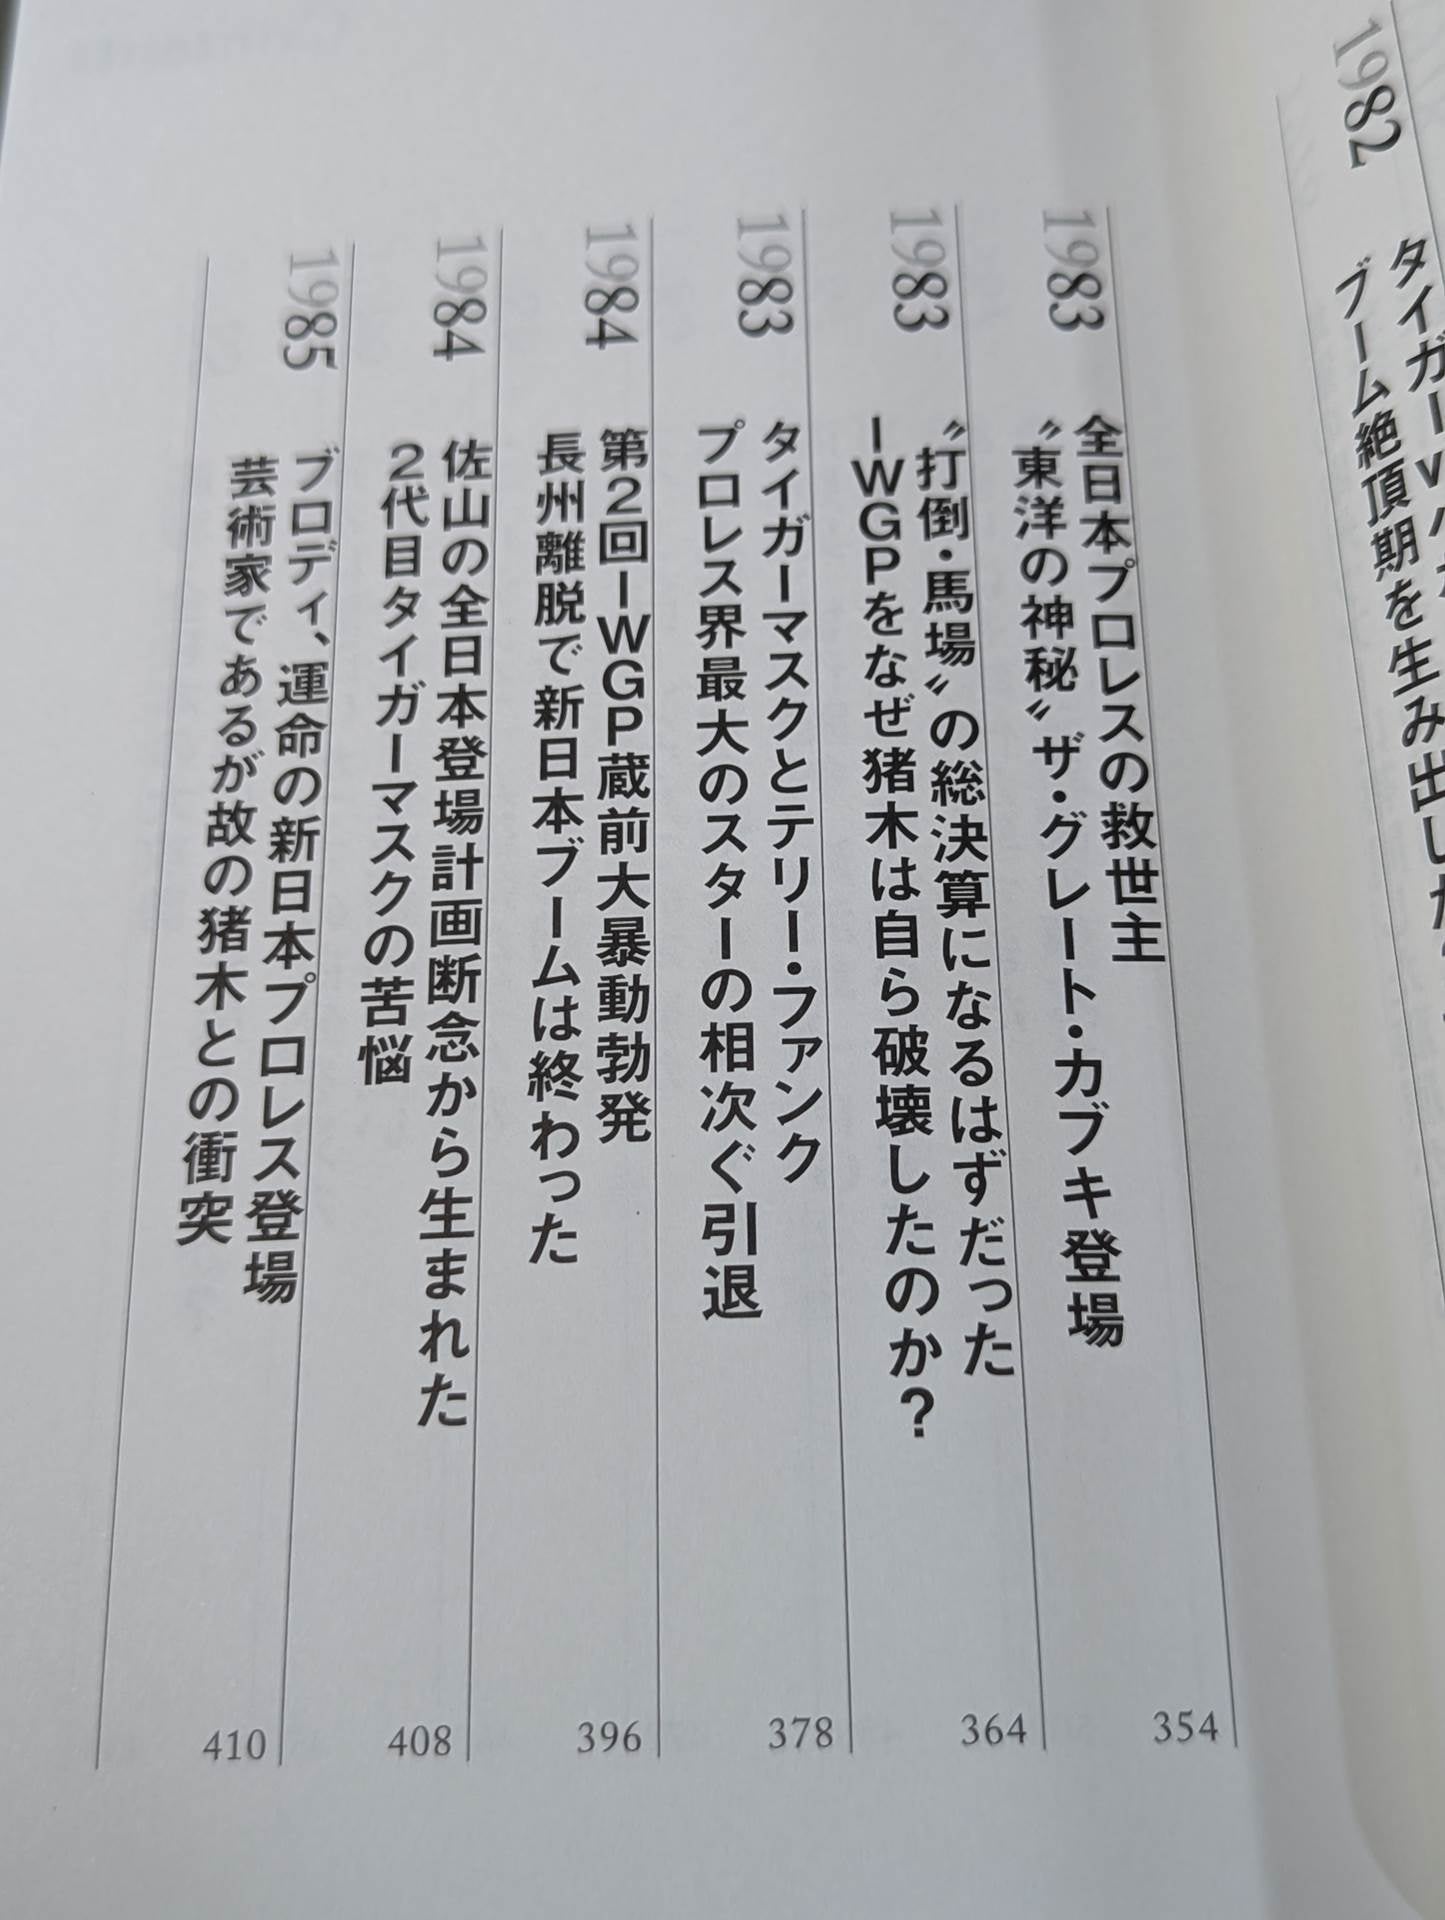 1982
ブーム絶頂期を生み出した
1983
全日本プロレスの救世主
〝東洋の神秘〟ザ・グレート・カブキ登場
354
1983
〝打倒・馬場〟の総決算になるはずだった
IWGPをなぜ猪木は自ら破壊したのか？
364
1983
タイガーマスクとテリー・ファンク
プロレス界最大のスターの相次ぐ引退
378
1984
第2回IWGP蔵前大暴動勃発
長州離脱で新日本ブームは終わった
396
1984
佐山の全日本登場計画断念から生まれた
2代目タイガーマスクの苦悩
408
1985
ブロディ、運命の新日本プロレス登場
芸術家であるが故の猪木との衝突
410